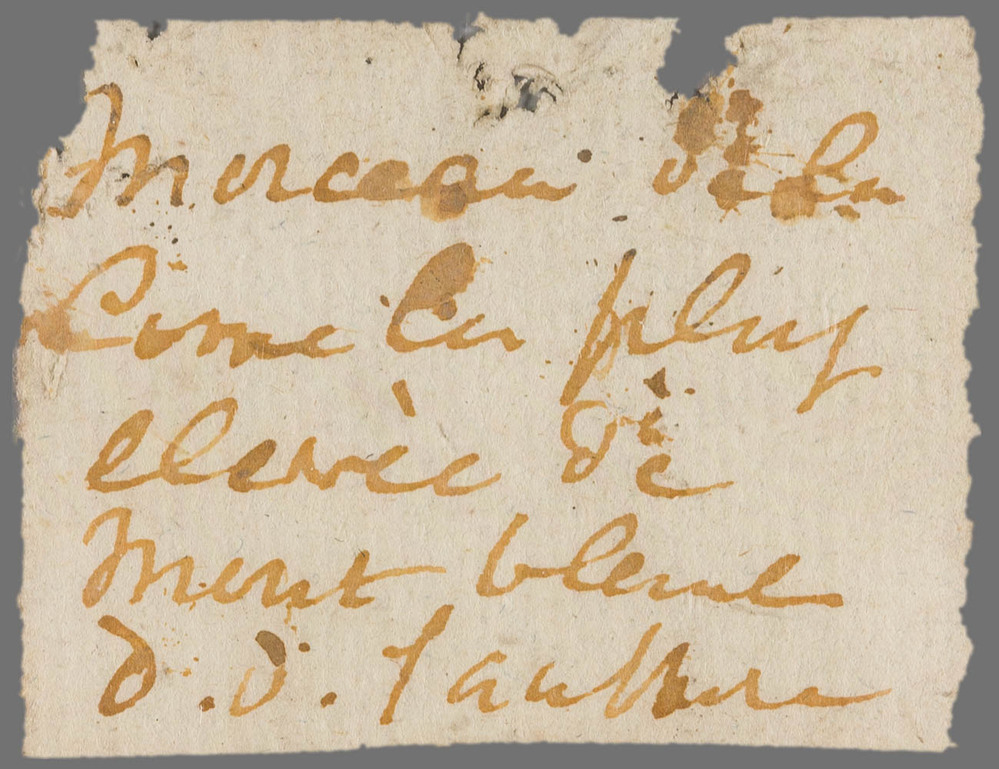 Morceau de la
Corne la plus
elevèe de
Mont blanc
d. d. Saussure